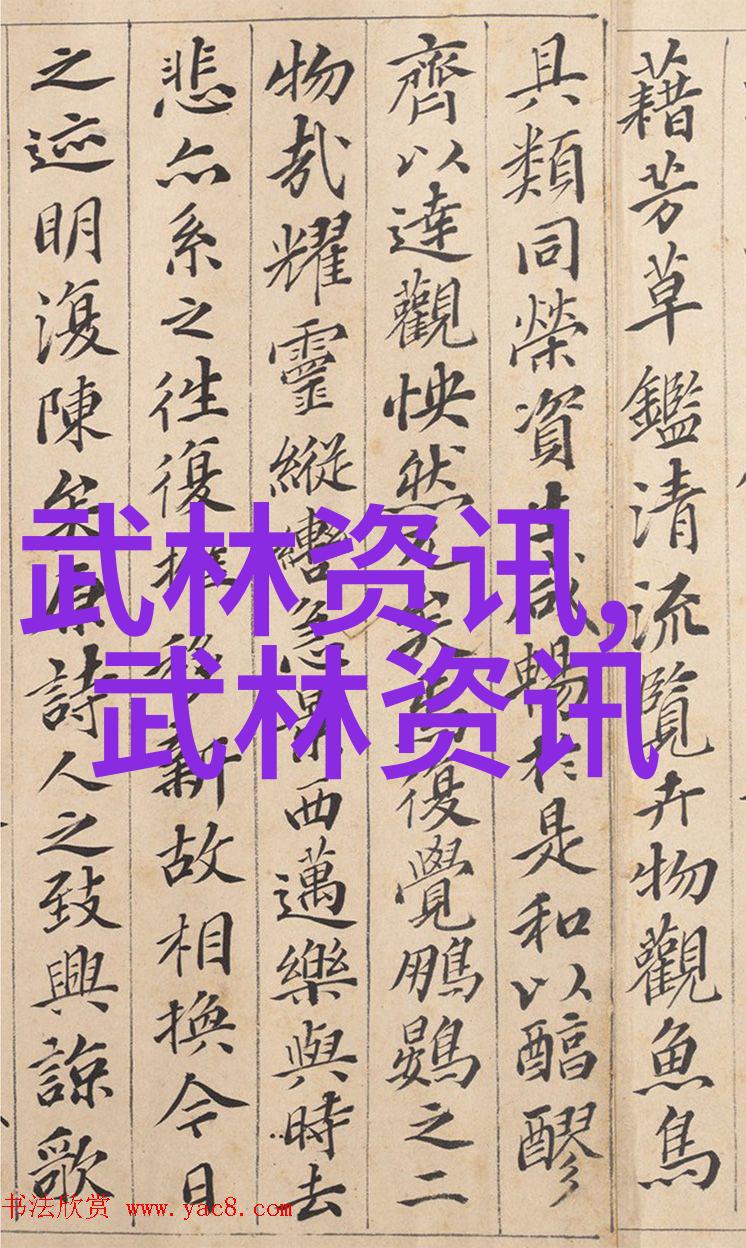 藉芳草鑑清流覽卉物觀魚鳥
具類同榮資生咸暢於是和以醕醪
齊以達觀怏然兀矣焉復覺鵬鷃之二
物哉耀靈縱轡急景西邁樂與時去
悲亦系之往復推移新故相換今日
之迹明復陳矣原詩人之致興諒歌
武林资讯,
武林资讯
书法欣赏 www.yac8.com